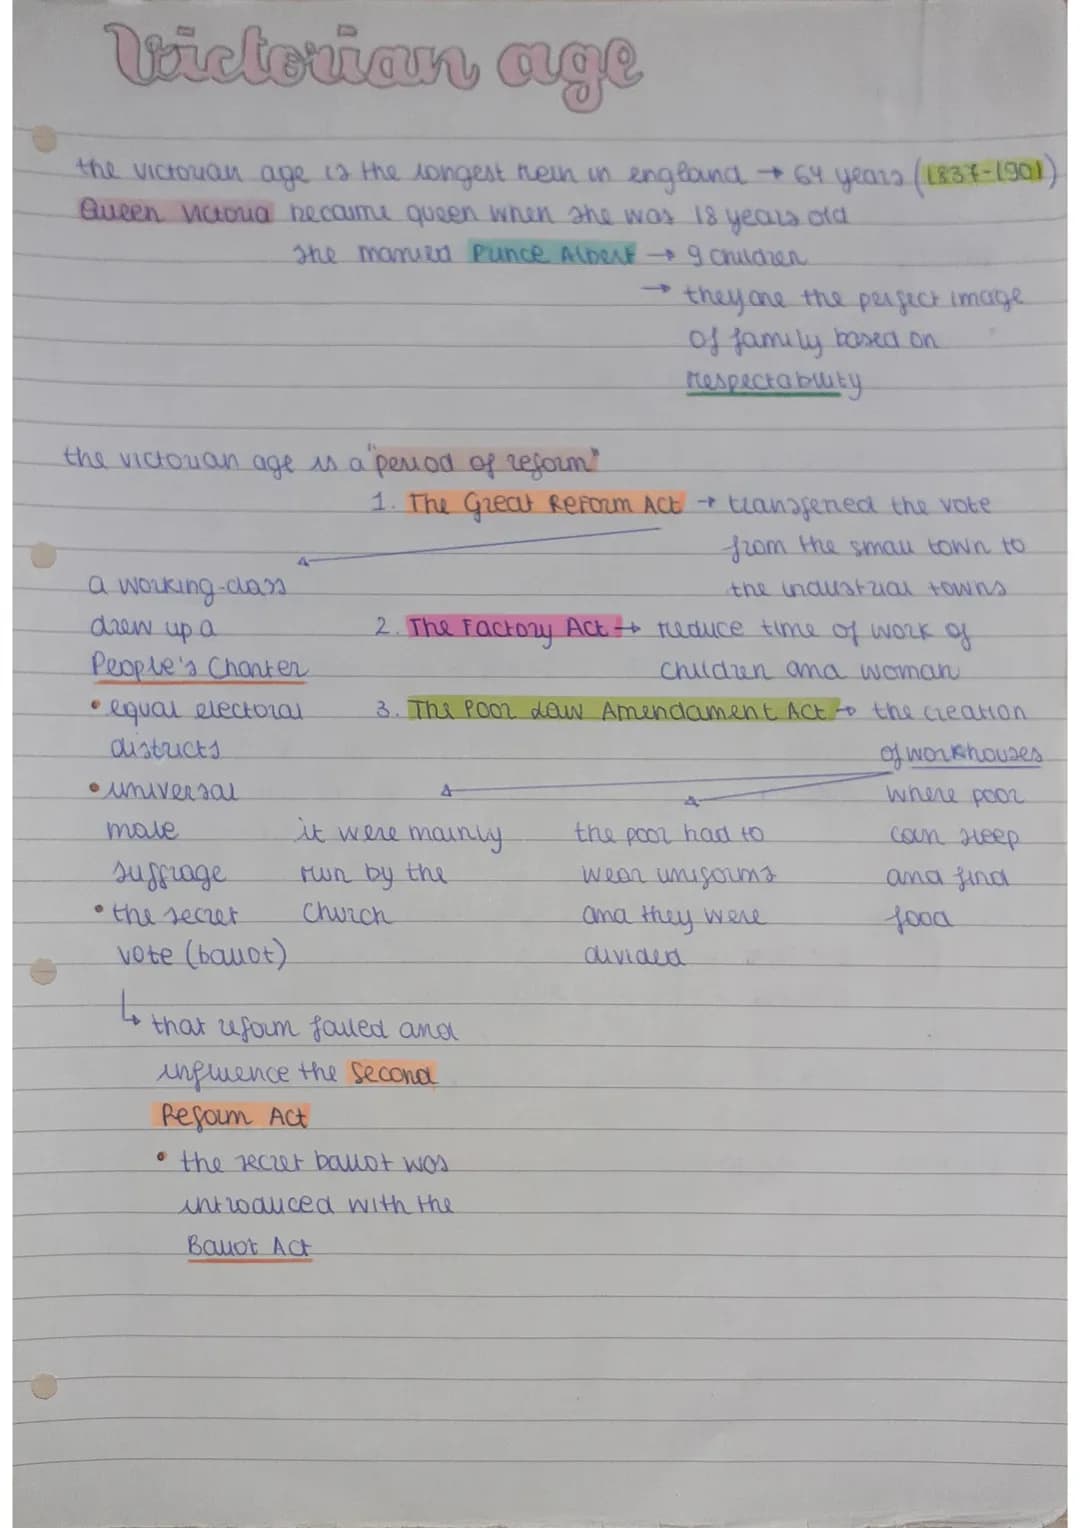 Victorian age
the victorian age is the longest rein in england → 64 years (1837-1901)
Queen Victoria became queen when she was 18 years old
she married Prince Albert → 9 children
→ they are the perfect image
of family based on
respectability
the victorian age is a "period of reform"
1. The Great Reform Act → transfered the vote
from the small town to
the industrial towns
a working-class
drew up a
People's Charter
• equal electoral
districts
• universal
male
suffrage
• the secret
vote (ballot)
2. The Factory Act → reduce time of work of
children and woman
3. The Poor Law Amendament Act → the creation
of workhouses
where poor
can sleep
and find
food
it were mainly
run by the
Church
the poor had to
wear uniforms
and they were
divided
↳ that reform failed and
influence the Second
Reform Act
• the secret ballot was
introduced with the
Ballot Act